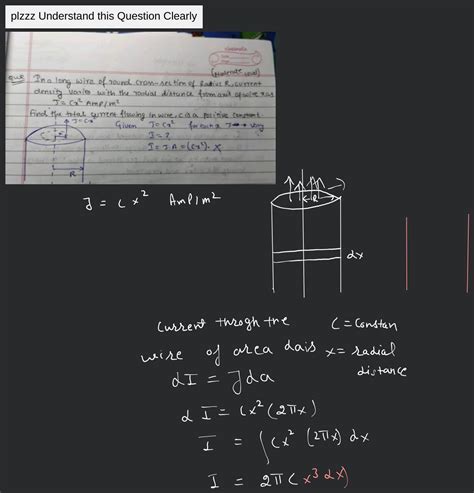 plzzz Understand this Question Clearly
(Moderate Level)
Que In a long wire of round cross-section of Radius R, current
density varies with the radial distance from axis of wire x as
J = Cx² Amp/m²
Find the total current flowing in wire, C is a positive constant.
J=Cx²
Given J=Cx² for out x J vary
I = ?
I = J.A = (Cx²). x
R
J = C x² Amp/m²
R
dx
Current throgh the
C = Constan
wire of area da is
x = radial
distance
dI = J da
d I = Cx² (2πx)
I = ∫ Cx² (2πx) dx
I = 2πC x³ dx)